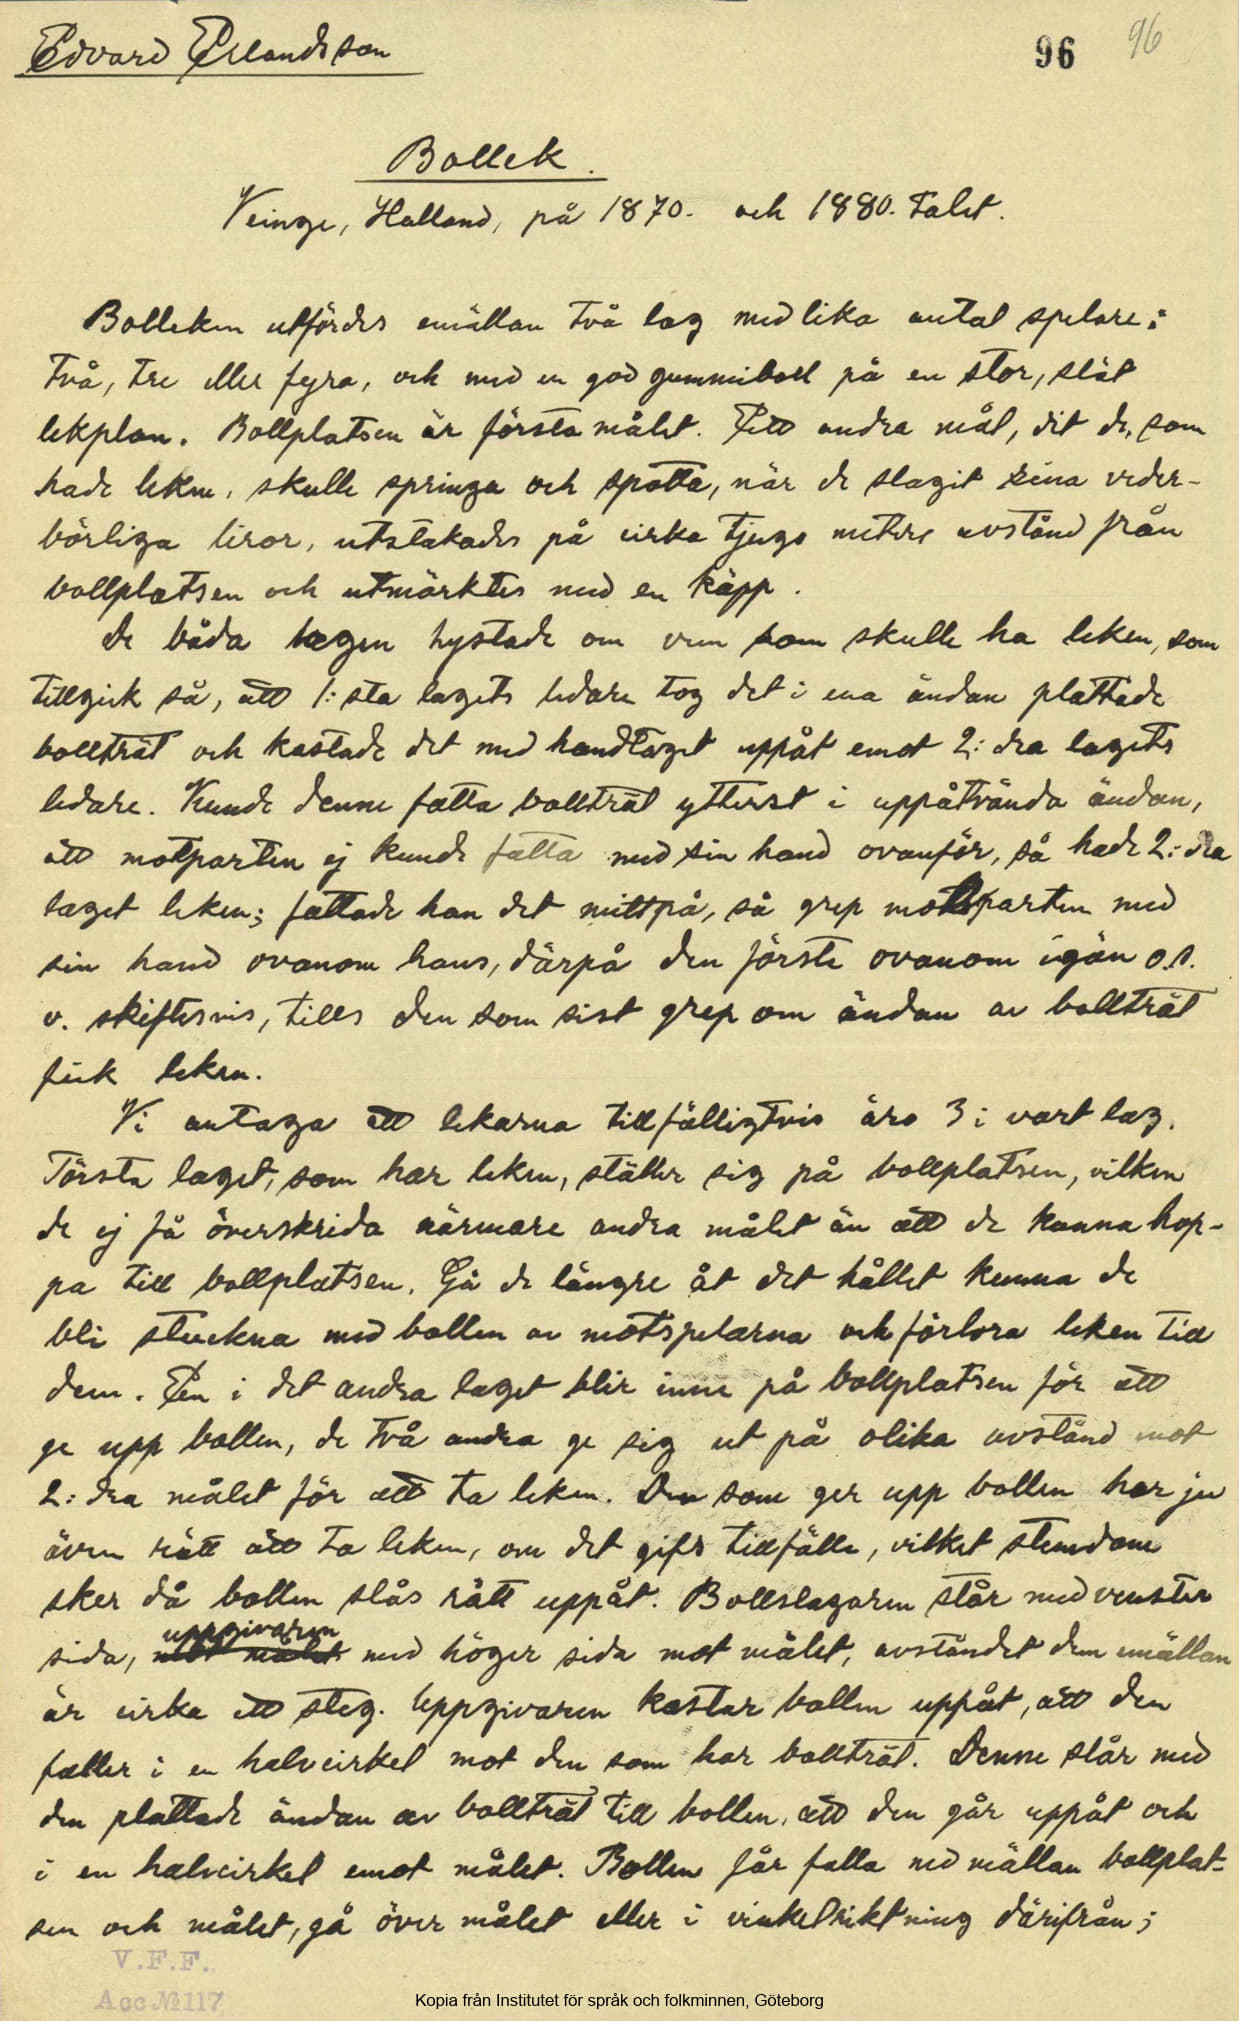 Edvard Erlandsson
96
96
Bollek.
Veinge, Halland, på 1870- och 1880-talet.
Bolleken utfördes emällan två lag med lika antal spelare;
två, tre eller fyra, och med en god gummiboll på en stor, slät
lekplan. Bollplatsen är första målet. Ett andra mål, dit de, som
hade leken, skulle springa och spotta, när de slagit sina veder-
börliga liror, utstakades på cirka tjugo meters avstånd från
bollplatsen och utmärktes med en käpp.
De båda lagen hystade om vem som skulle ha leken, som
tillgick så, att 1:sta lagets ledare tog det i ena ändan plattade
bollträt och kastade det med handtaget uppåt emot 2:dra lagets
ledare. Kunde denne fatta bollträt ytterst i uppåtvända ändan,
att motparten ej kunde fatta med sin hand ovanför, så hade 2:dra
laget leken; fattade han det mittpå, så grep motparten med
sin hand ovanom hans, därpå den förste ovanom igän o.s.
v. skiftesvis, tills den som sist grep om ändan av bollträt
fick leken.
Vi antaga att lekarna tillfälligtvis äro 3 i vart lag.
Första laget, som har leken, ställer sig på bollplatsen, vilken
de ej få överskrida närmare andra målet än att de kunna hop-
pa till bollplatsen. Gå de längre åt det hållet kunna de
bli stuckna med bollen av motspelarna och förlora leken till
dem. En i det andra laget blir inne på bollplatsen för att
ge upp bollen, de två andra ge sig ut på olika avstånd mot
2:dra målet för att ta leken. Den som ger upp bollen har ju
även rätt att ta leken, om det gifs tillfälle, vilket stundom
sker då bollen slås rätt uppåt. Bollslagaren står med venster
uppgivaren
sida, mot målet med höger sida mot målet, avståndet dem emällan
är cirka ett steg. Uppgivaren kastar bollen uppåt, att den
faller i en halvcirkel mot den som har bollträt. Denne slår med
den plattade ändan av bollträt till bollen, att den går uppåt och
i en halvcirkel emot målet. Bollen får falla ned mällan bollplat-
sen och målet, gå över målet eller i vinkelriktning därifrån;
V.F.F.
Acc №117
Kopia från Institutet för språk och folkminnen, Göteborg